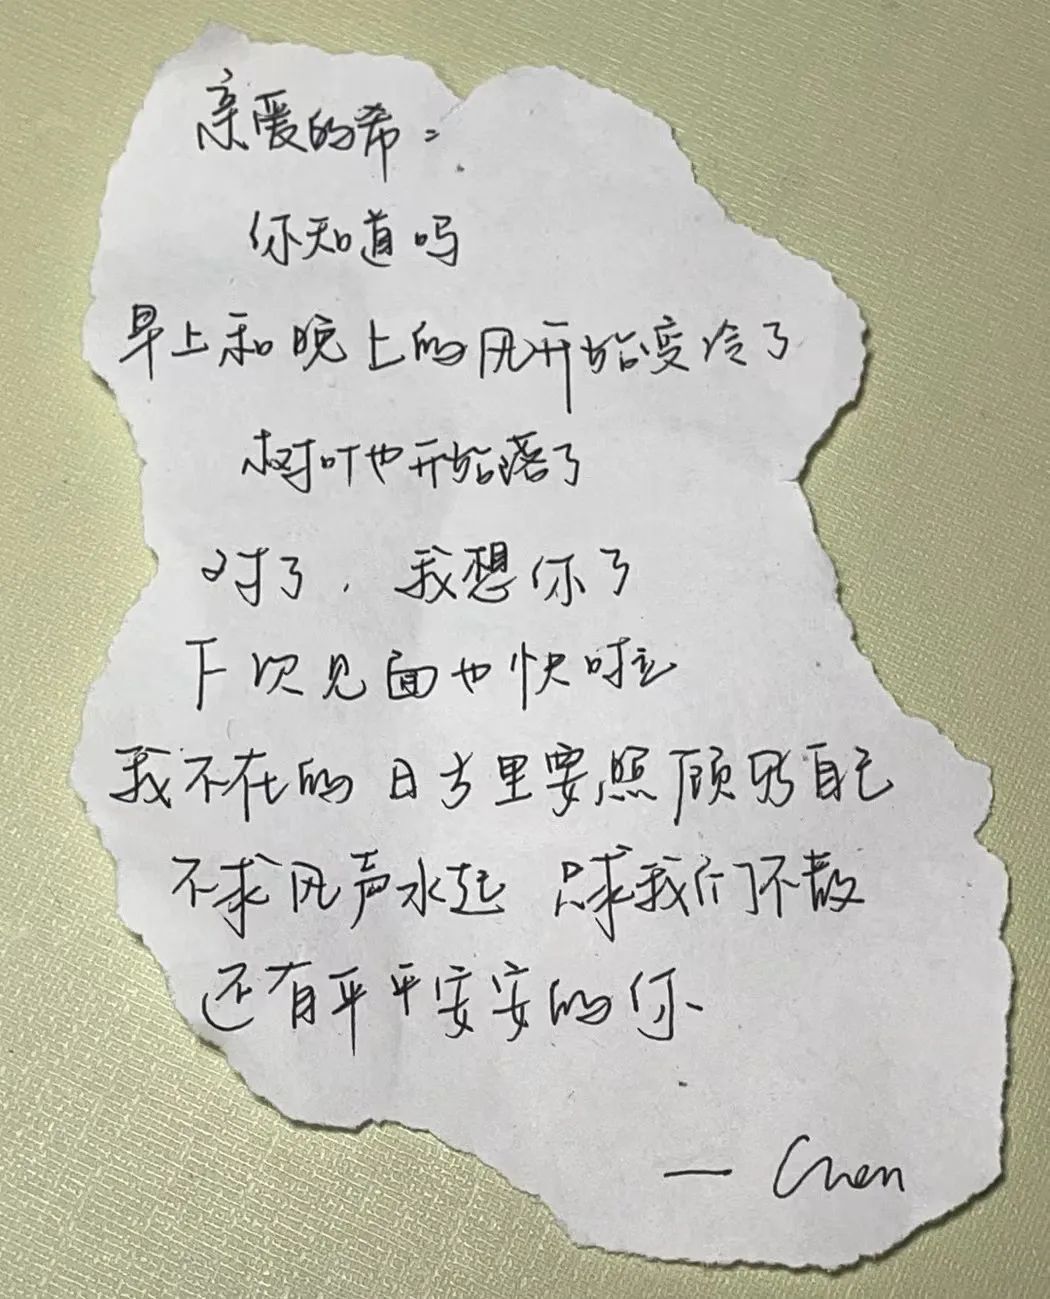 亲爱的希：
你知道吗
早上和晚上的风开始变冷了
树叶也开始落了
对了，我想你了
下次见面也快啦
我不在的日子里要照顾好自己
不求风声水起 只求我们不散
还有平平安安的你
— Chen